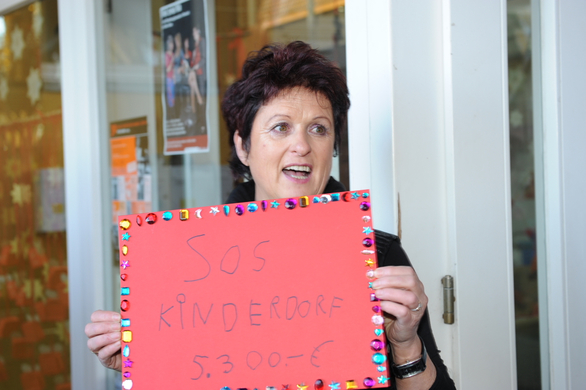 SOS
KINDERDORF
5.300.– €